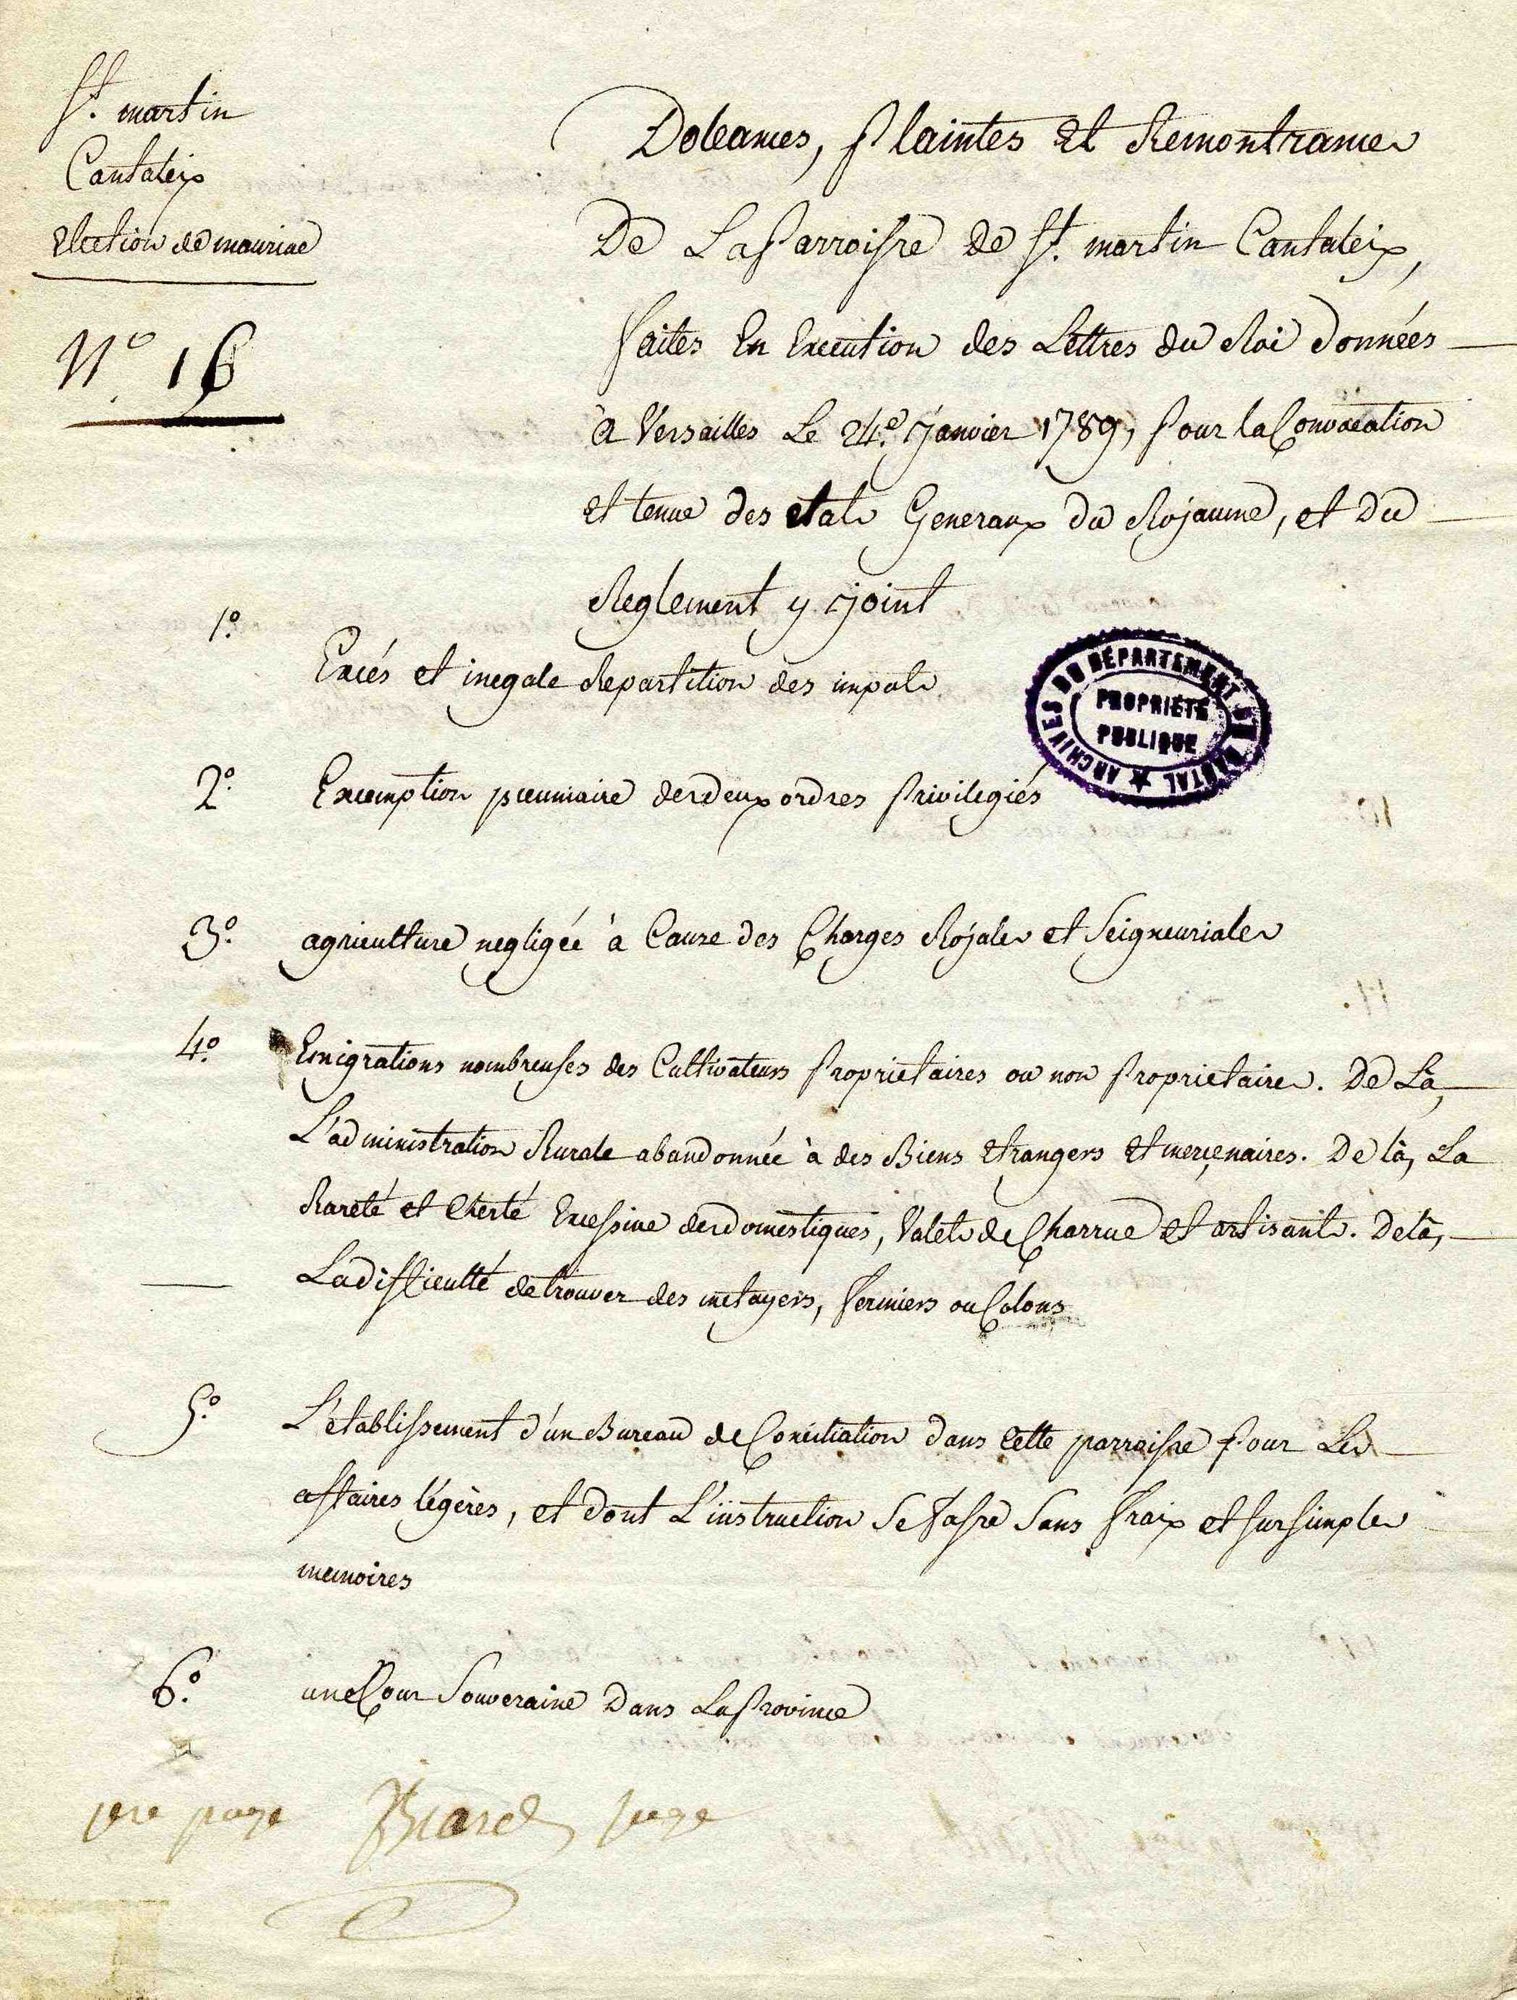 St. martin
Cantaleix
Election de mauriac
N.° 16
Doleances, Plaintes Et Remontrances
De La Parroisse de St. martin Cantaleix,
faites En Execution des Lettres du Roi données
à Versailles Le 24.e Janvier 1789, Pour la Convocation
et tenue des etats Generaux du Rojaume, et Du
Reglement y joint
1.° Excés et inegale Repartition des impots
ARCHIVES DU DÉPARTEMENT DU CANTAL
PROPRIÉTÉ
PUBLIQUE
2.° Exemption pecuniaire des deux ordres Privilegiés
3.° agriculture negligée à Cause des Charges Rojales et Seigneuriales
4.° Emigrations nombreuses des Cultivateurs Proprietaires ou non Proprietaires. De Là,
L'administration Rurale abandonnée à des Biens Etrangers Et merçenaires. De là, La
Rareté et Cherté Excessive des domestiques, Valets de Charrue Et artisants. De là,
La difficulté de trouver des metayers, fermiers ou Colons
5.° L'établissement d'un Bureau de Conciliation dans Cette parroisse Pour Les
affaires légères, et dont L'instruction Se fasse Sans fraix et sur simples
memoires
6.° une Cour Souveraine Dans La Province
1ere page Biard juge